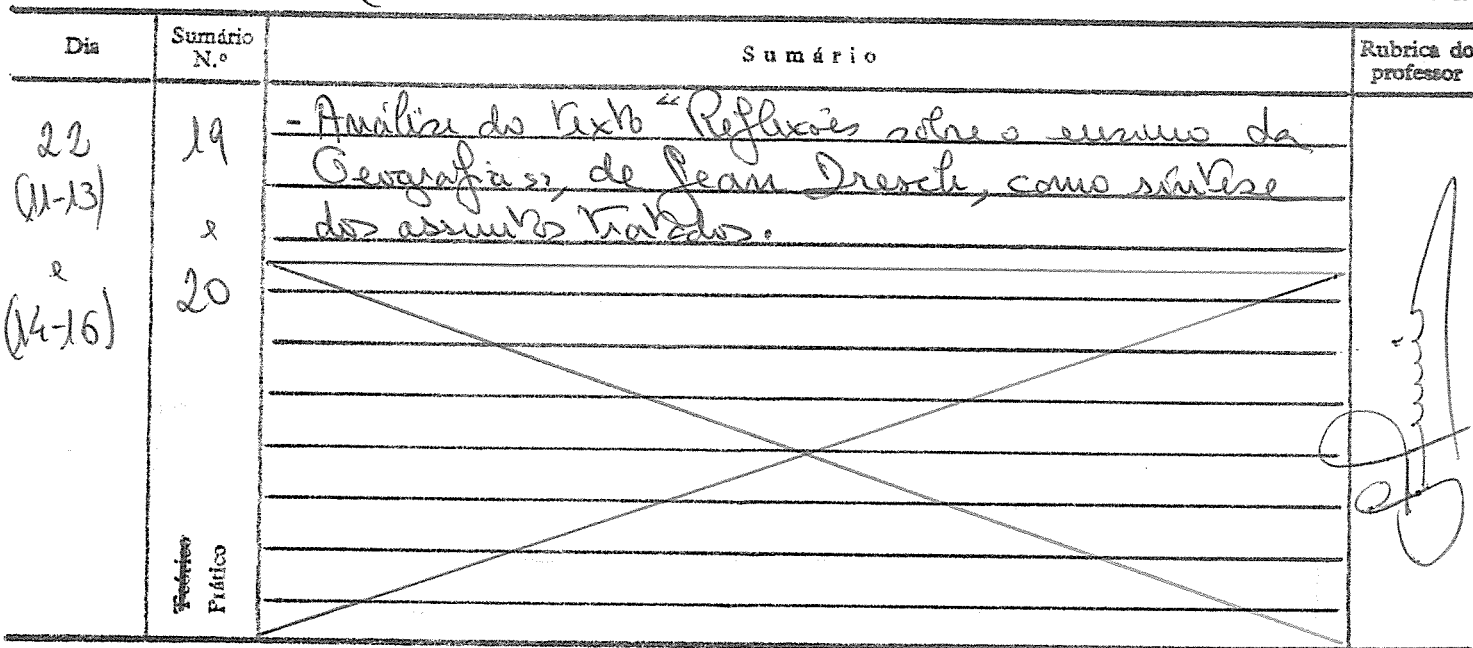 Dia
Sumário N.º
Sumário
Rubrica do professor
22
(11-13)
e
(14-16)
19
e
20
- Análise do texto "Reflexões sobre o ensino da
Geografia", de Jean Dresch, como síntese
dos assuntos tratados.
Teórico
Prático